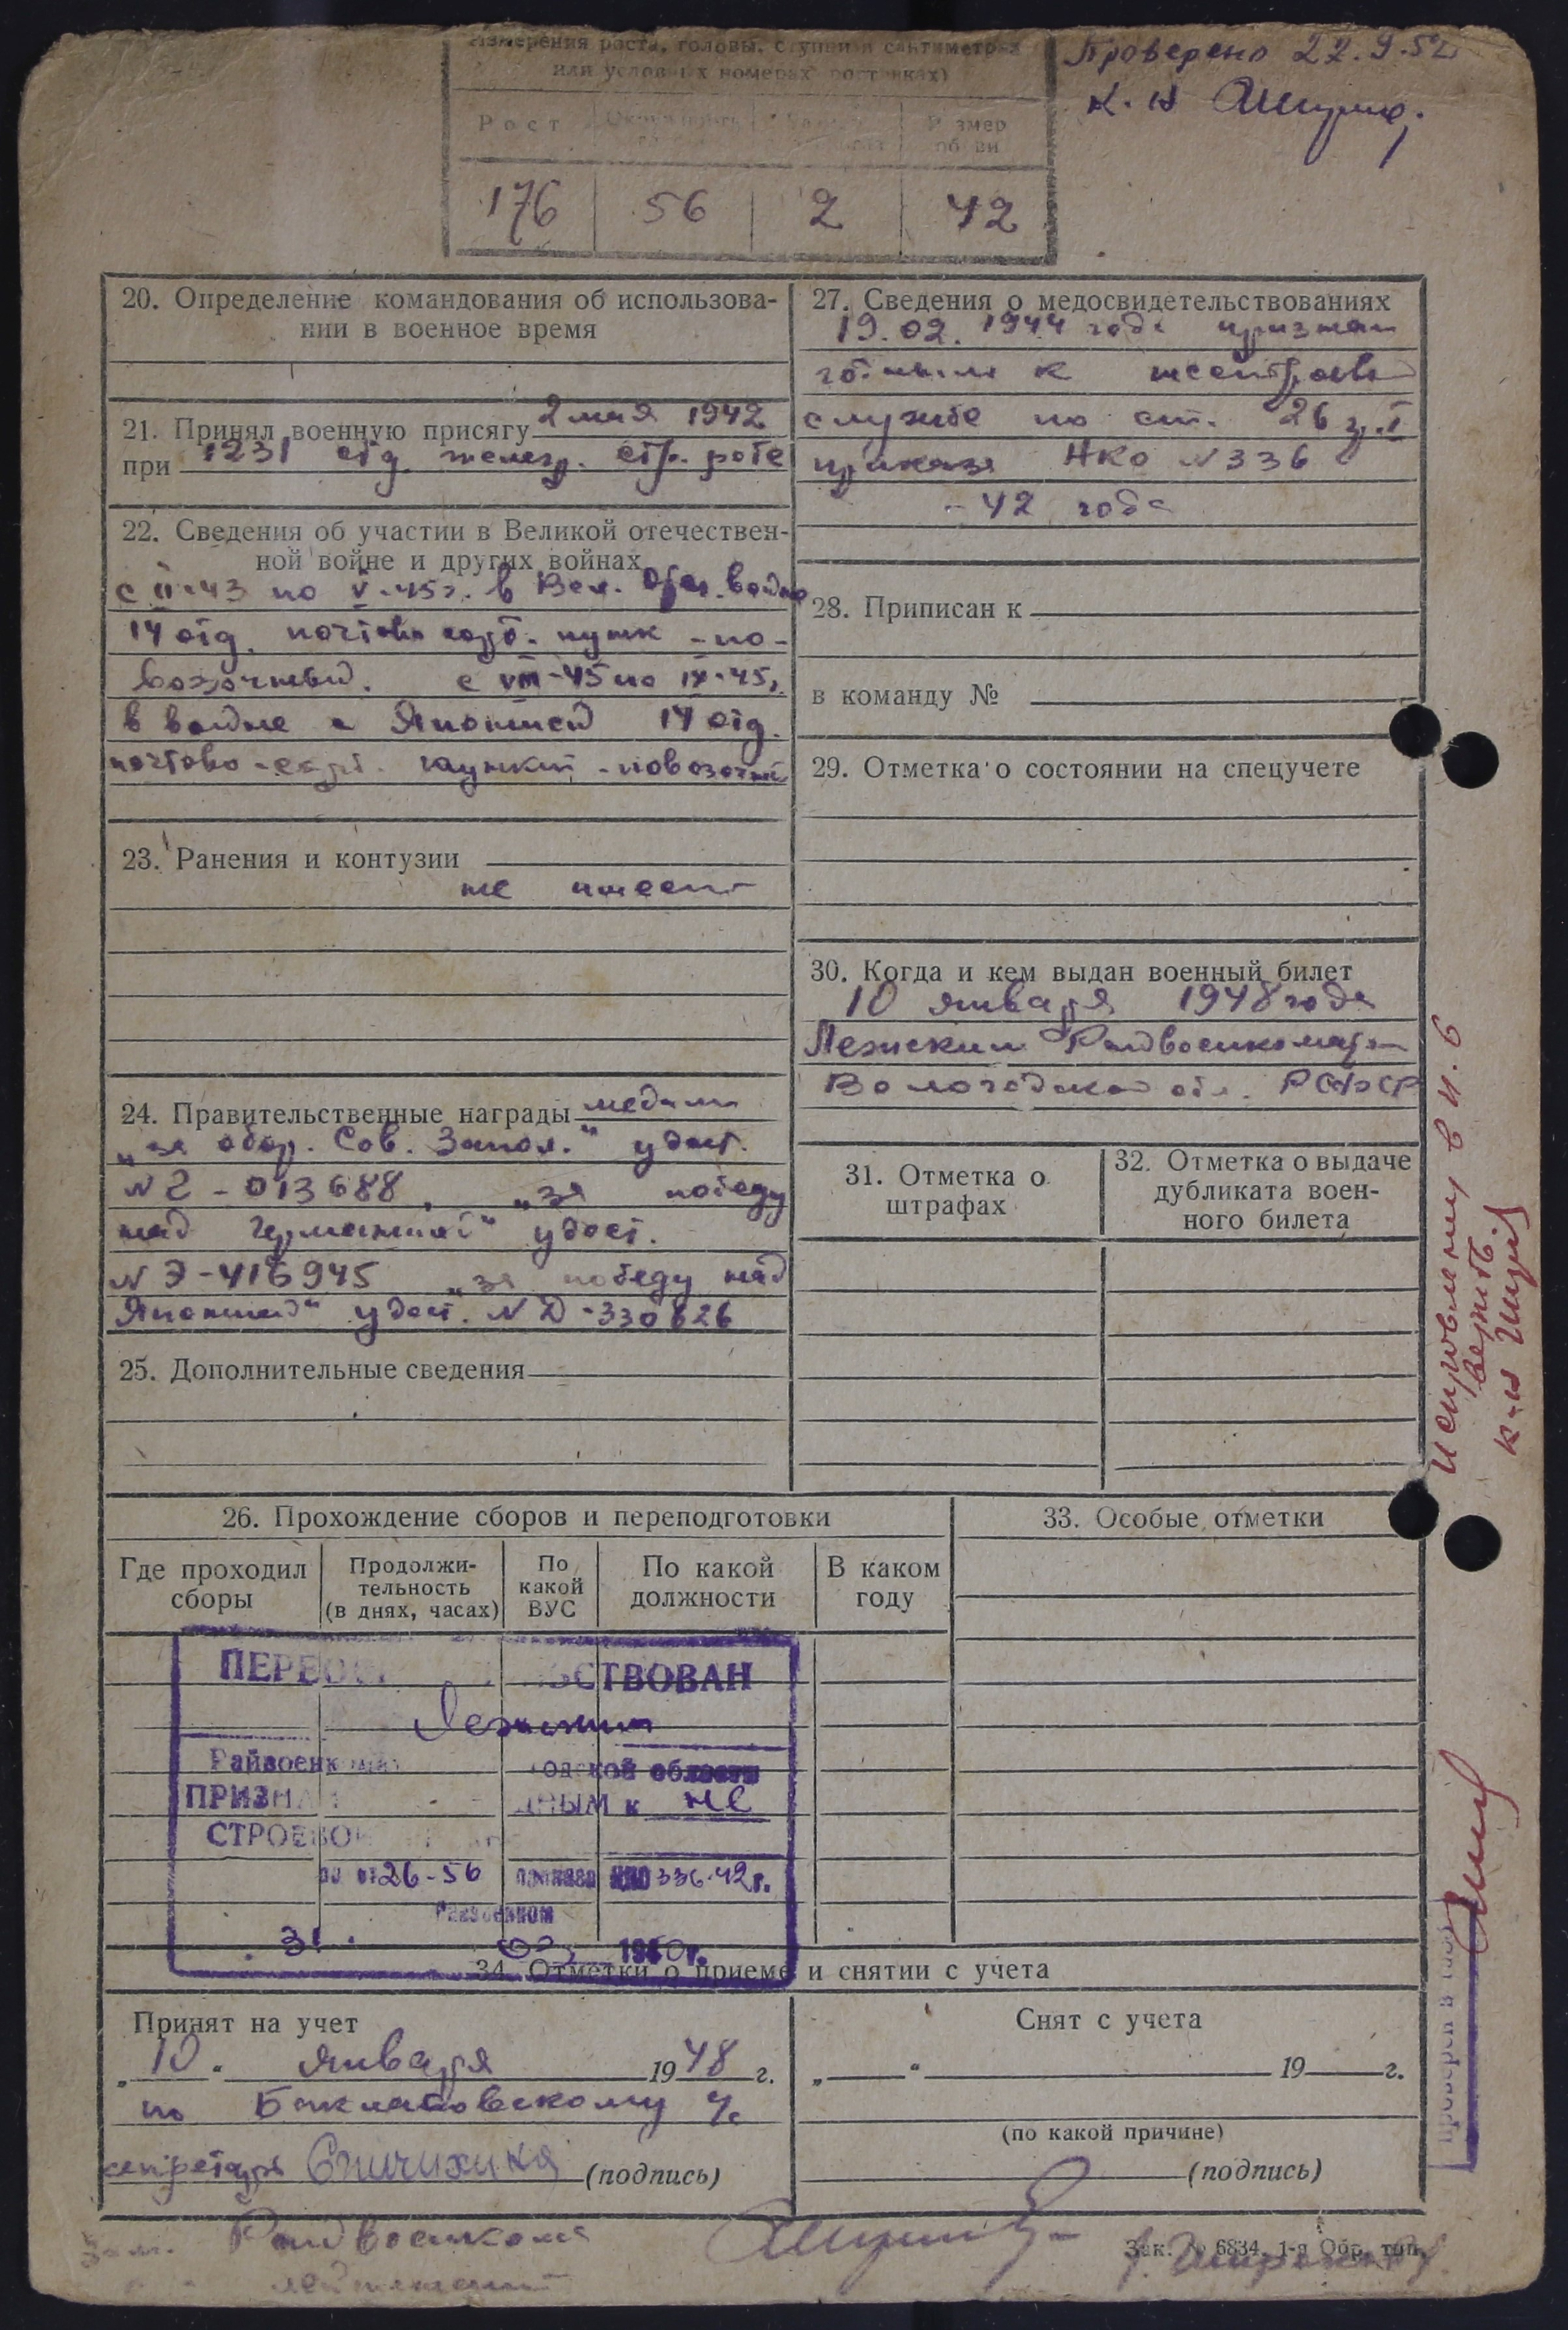 Измерения роста, головы, ступни в сантиметрах
или условных номерах ростовках)
Проверено 22.9.52
к-н
Рост
Размер обуви
176 56 2 42
20. Определение командования об использова-
нии в военное время
21. Принял военную присягу 2 мая 1942
при 1231 отд. железд. стр. роте
22. Сведения об участии в Великой отечествен-
ной войне и других войнах
с II-43 по V-45г. в Вел. Отеч. войне
14 отд. почтово сорт. пункт -по-
возочный. с VIII-45 по IX-45г.
в войне с Японией 14 отд.
почтово-сорт. пункт -повозочный
23. Ранения и контузии
не имеет
24. Правительственные награды медали
„за обор. Сов. Запол." удост.
№ 2-013688, „за победу
над Германией" удост.
№ Э-416945 „за победу над
Японией" удост. № Д-330826
25. Дополнительные сведения
27. Сведения о медосвидетельствованиях
19.02.1944 года признан
годным к нестроевой
службе по ст. 26 гр. I
приказа НКО №336
-42 года
28. Приписан к
в команду №
29. Отметка о состоянии на спецучете
30. Когда и кем выдан военный билет
10 января 1948 года
Лежским Райвоенкоматом
Вологодской обл. РСФСР
31. Отметка о
штрафах
32. Отметка о выдаче
дубликата воен-
ного билета
Исправленному в п. 6
верить.
к-н
26. Прохождение сборов и переподготовки
Где проходил
сборы
Продолжи-
тельность
(в днях, часах)
По
какой
ВУС
По какой
должности
В каком
году
33. Особые отметки
ПЕРЕОСВИДЕТЕЛЬСТВОВАН
Лежским
Райвоенкоматом Вологодской области
ПРИЗНАН ГОДНЫМ к не
СТРОЕВОЙ
по ст 26-56 приказа НКО 336-42г.
Райвоенком
31. 03 1950г.
34. Отметки о приеме и снятии с учета
Принят на учет
„10" января 1948 г.
по Баклановскому
секретарь Спичихина (подпись)
Снят с учета
„ " 19 г.
(по какой причине)
(подпись)
проверен в
Зам. Райвоенкома
лейтенант
Зак. № 6834. 1-я Обр. тип.